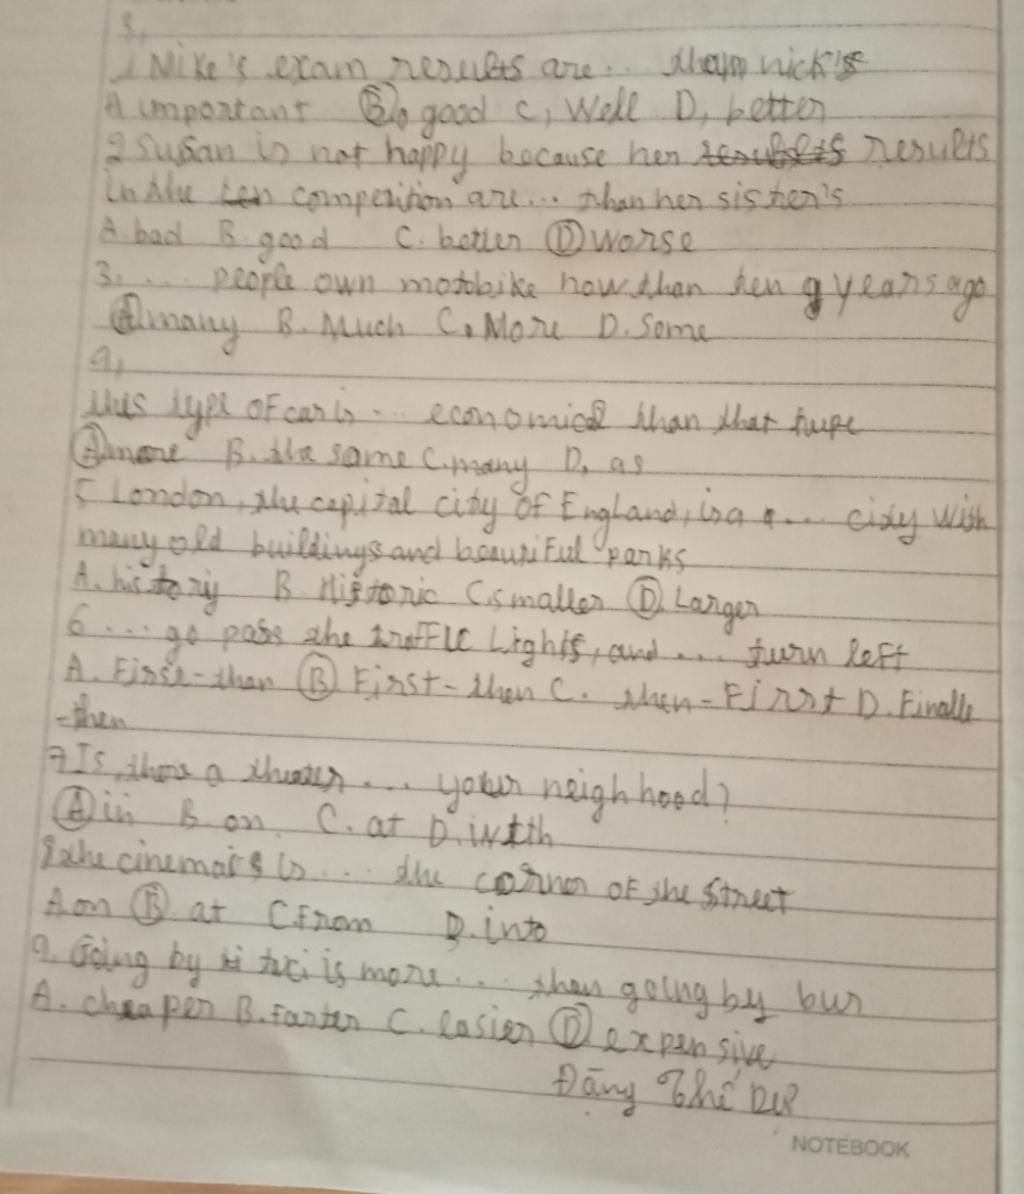 3,
1 Mike's exam results are... than nick's
A important B, good C, Well D, better
2 Susan is not happy because her results results
in the ten comperition are... than her sister's
A. bad B. good C. better D worse
3. ... people own motobike now than ten y years ago
A many B. Much C. More D. Some
4,
this type of car is ... economical than that tupe
A more B. the same C. many D. as
5 London, the capital city of England, is a ... city with
many old buildings and beautiful parks
A. history B. Historic C. smaller D. Larger
6 ... go pass the traffic Lights, and ... turn left
A. First-than B First-then C. then-First D. Finalle
-then
7 Is there a theater ... your neighhood?
A in B. on C. at D. with
8 the cinema's is ... the corner of the street
A on B at C. From D. into
9. Going by taxi is more ... than going by bus
A. cheaper B. Faster C. easier D expensive
Đặng Thế Dự
NOTEBOOK